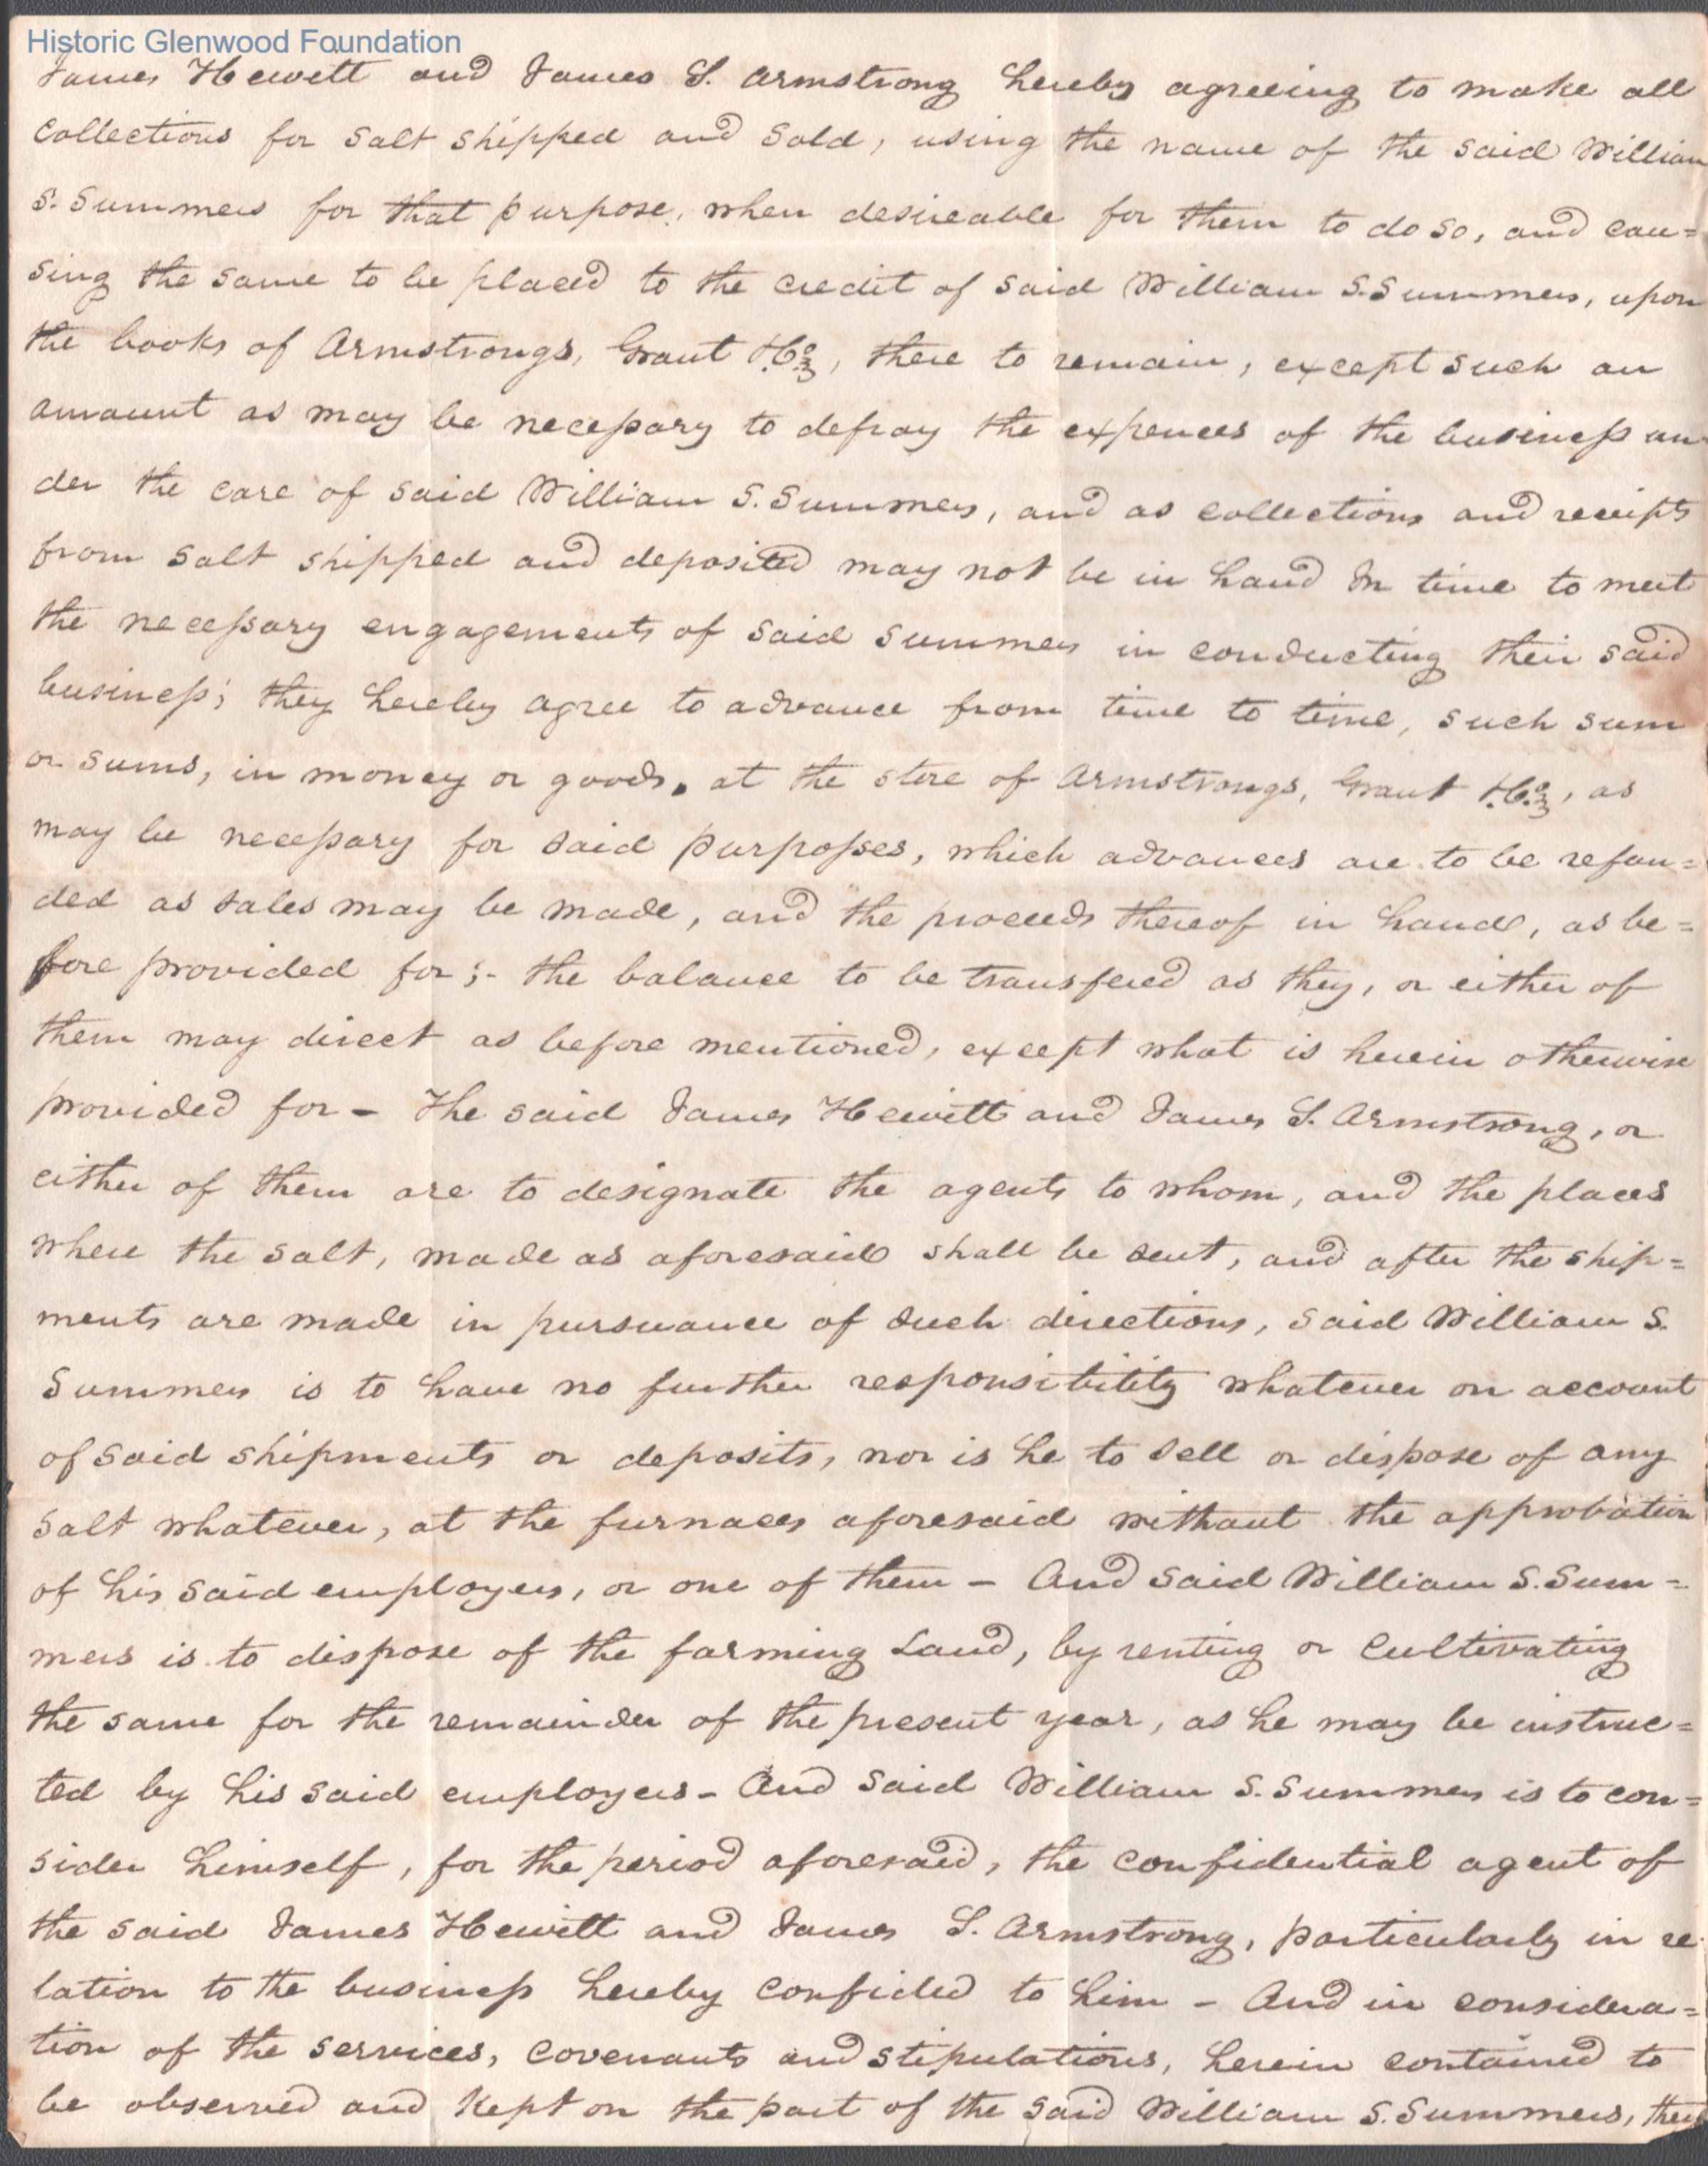 Historic Glenwood Foundation
James Hewitt and James S. Armstrong hereby agreeing to make all
collections for salt shipped and sold, using the name of the said William
S. Summers for that purpose, when desireable for them to do so, and cau=
sing the same to be placed to the credit of said William S. Summers, upon
the books of Armstrongs, Grant & Co, there to remain, except such an
amount as may be necessary to defray the expences of the business un
der the care of said William S. Summers, and as collections and receipts
from salt shipped and deposited may not be in hand in time to meet
the necessary engagements of said Summers in conducting their said
business; they hereby agree to advance from time to time, such sum
or sums, in money or goods, at the store of Armstrongs, Grant & Co, as
may be necessary for said purposses, which advances are to be refun=
ded as sales may be made, and the proceeds thereof in hand, as be=
fore provided for;- the balance to be transfered as they, or either of
them may direct as before mentioned, except what is herein otherwise
provided for - The said James Hewitt and James S. Armstrong, or
either of them are to designate the agents to whom, and the places
where the salt, made as aforesaid shall be sent, and after the ship=
ments are made in pursuance of such directions, said William S.
Summers is to have no further responsibility whatever on account
of said shipments or deposits, nor is he to sell or dispose of any
salt whatever, at the furnaces aforesaid without the approbation
of his said employers, or one of them - And said William S. Sum=
mers is to dispose of the farming Land, by renting or cultivating
the same for the remainder of the present year, as he may be instruc=
ted by his said employers - And said William S. Summers is to con=
sider himself, for the period aforesaid, the confidential agent of
the said James Hewitt and James S. Armstrong, particularly in re
lation to the business hereby confided to him - And in considera=
tion of the services, covenants and stipulations, herein contained to
be observed and kept on the part of the said William S. Summers, they